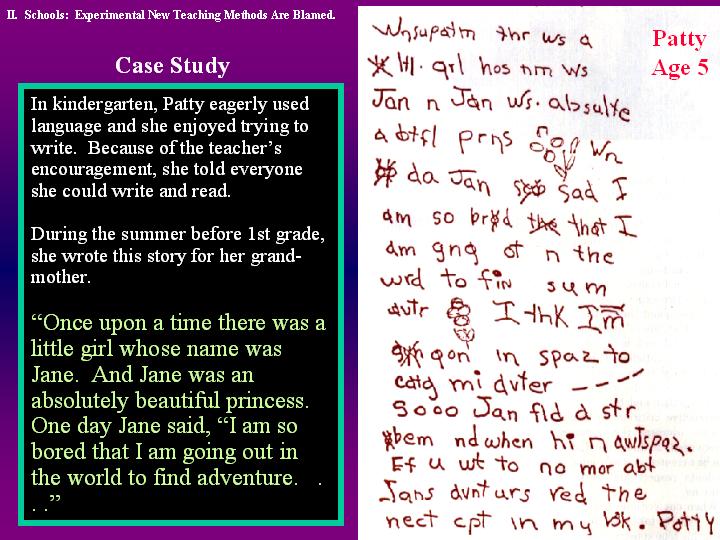 II. Schools: Experimental New Teaching Methods Are Blamed.
Case Study
In kindergarten, Patty eagerly used
language and she enjoyed trying to
write. Because of the teacher's
encouragement, she told everyone
she could write and read.
During the summer before 1st grade,
she wrote this story for her grand-
mother.
“Once upon a time there was a
little girl whose name was
Jane. And Jane was an
absolutely beautiful princess.
One day Jane said, “I am so
bored that I am going out in
the world to find adventure. .
. .”
Patty
Age 5
Wnsupatm thr ws a
ltl. grl hos nm ws
Jan n Jan ws. absulte
a btfl prns Wn
da Jan sad I
am so brd that I
am gng ot n the
wrd to fin sum
dvtr I thk Im
gon in spaz to
catg mi dvter ----
Sooo Jan fld a str
bem nd when hi n awtspaz.
Ef u wt to no mor abt
Jans dvnturs red the
nect cpt in my bk. Patty